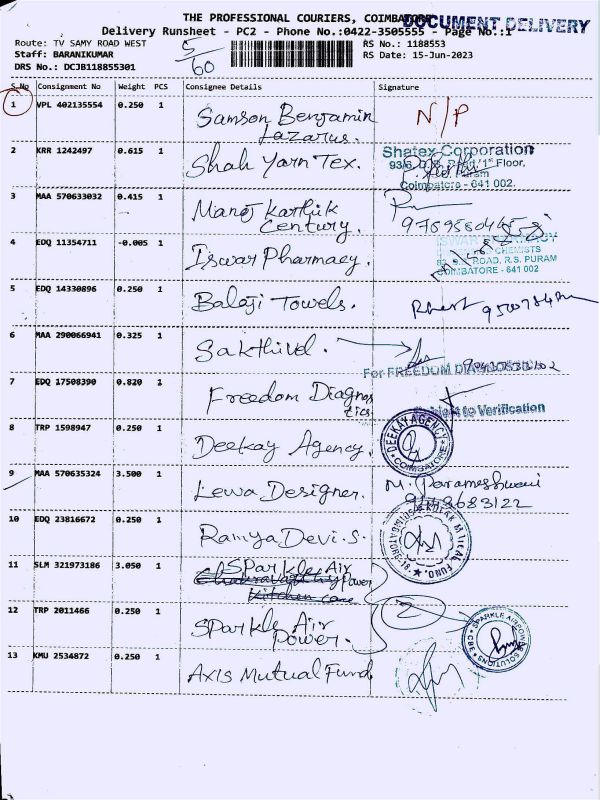 THE PROFESSIONAL COURIERS, COIMBATORE
DOCUMENT DELIVERY
Delivery Runsheet - PC2 - Phone No.:0422-3505555 - Page No.:1
Route: TV SAMY ROAD WEST
5/60
RS No.: 1188553
Staff: BARANIKUMAR
RS Date: 15-Jun-2023
DRS No.: DCJB118855301
S.No Consignment No Weight PCS Consignee Details Signature
1 VPL 402135554 0.250 1 Samson Benjamin N/P
Lazarus.
2 KRR 1242497 0.615 1 Shah Yarn Tex. Shatex Corporation
1st Floor,
Puram
Coimbatore - 641 002.
3 MAA 570633032 0.415 1 Manoj Karthik
Century.
4 EDQ 11354711 -0.005 1 Iswar Pharmacy. ISWAR PHARMACY
CHEMISTS
ROAD, R.S. PURAM
COIMBATORE - 641 002
5 EDQ 14330896 0.250 1 Balaji Towels.
6 MAA 290066941 0.325 1 Sakthivel.
For FREEDOM DIAGNOSTICS
7 EDQ 17508390 0.820 1 Freedom Diagnos
tics.
Subject to Verification
8 TRP 1598947 0.250 1 Deekay Agency. DEEKAY AGENCY
COIMBATORE
9 MAA 570635324 3.500 1 Lewa Designer. M. Parameshwari
10 EDQ 23816672 0.250 1 Ramya Devi.S. KOTAK MUTUAL FUND
11 SLM 321973186 3.050 1 Sparkle Air
power
Kitchen care
12 TRP 2011466 0.250 1 Sparkle Air 2
Power.
SPARKLE AIRPOWER SOLUTIONS CBE
13 KMU 2534872 0.250 1 Axis Mutual Fund